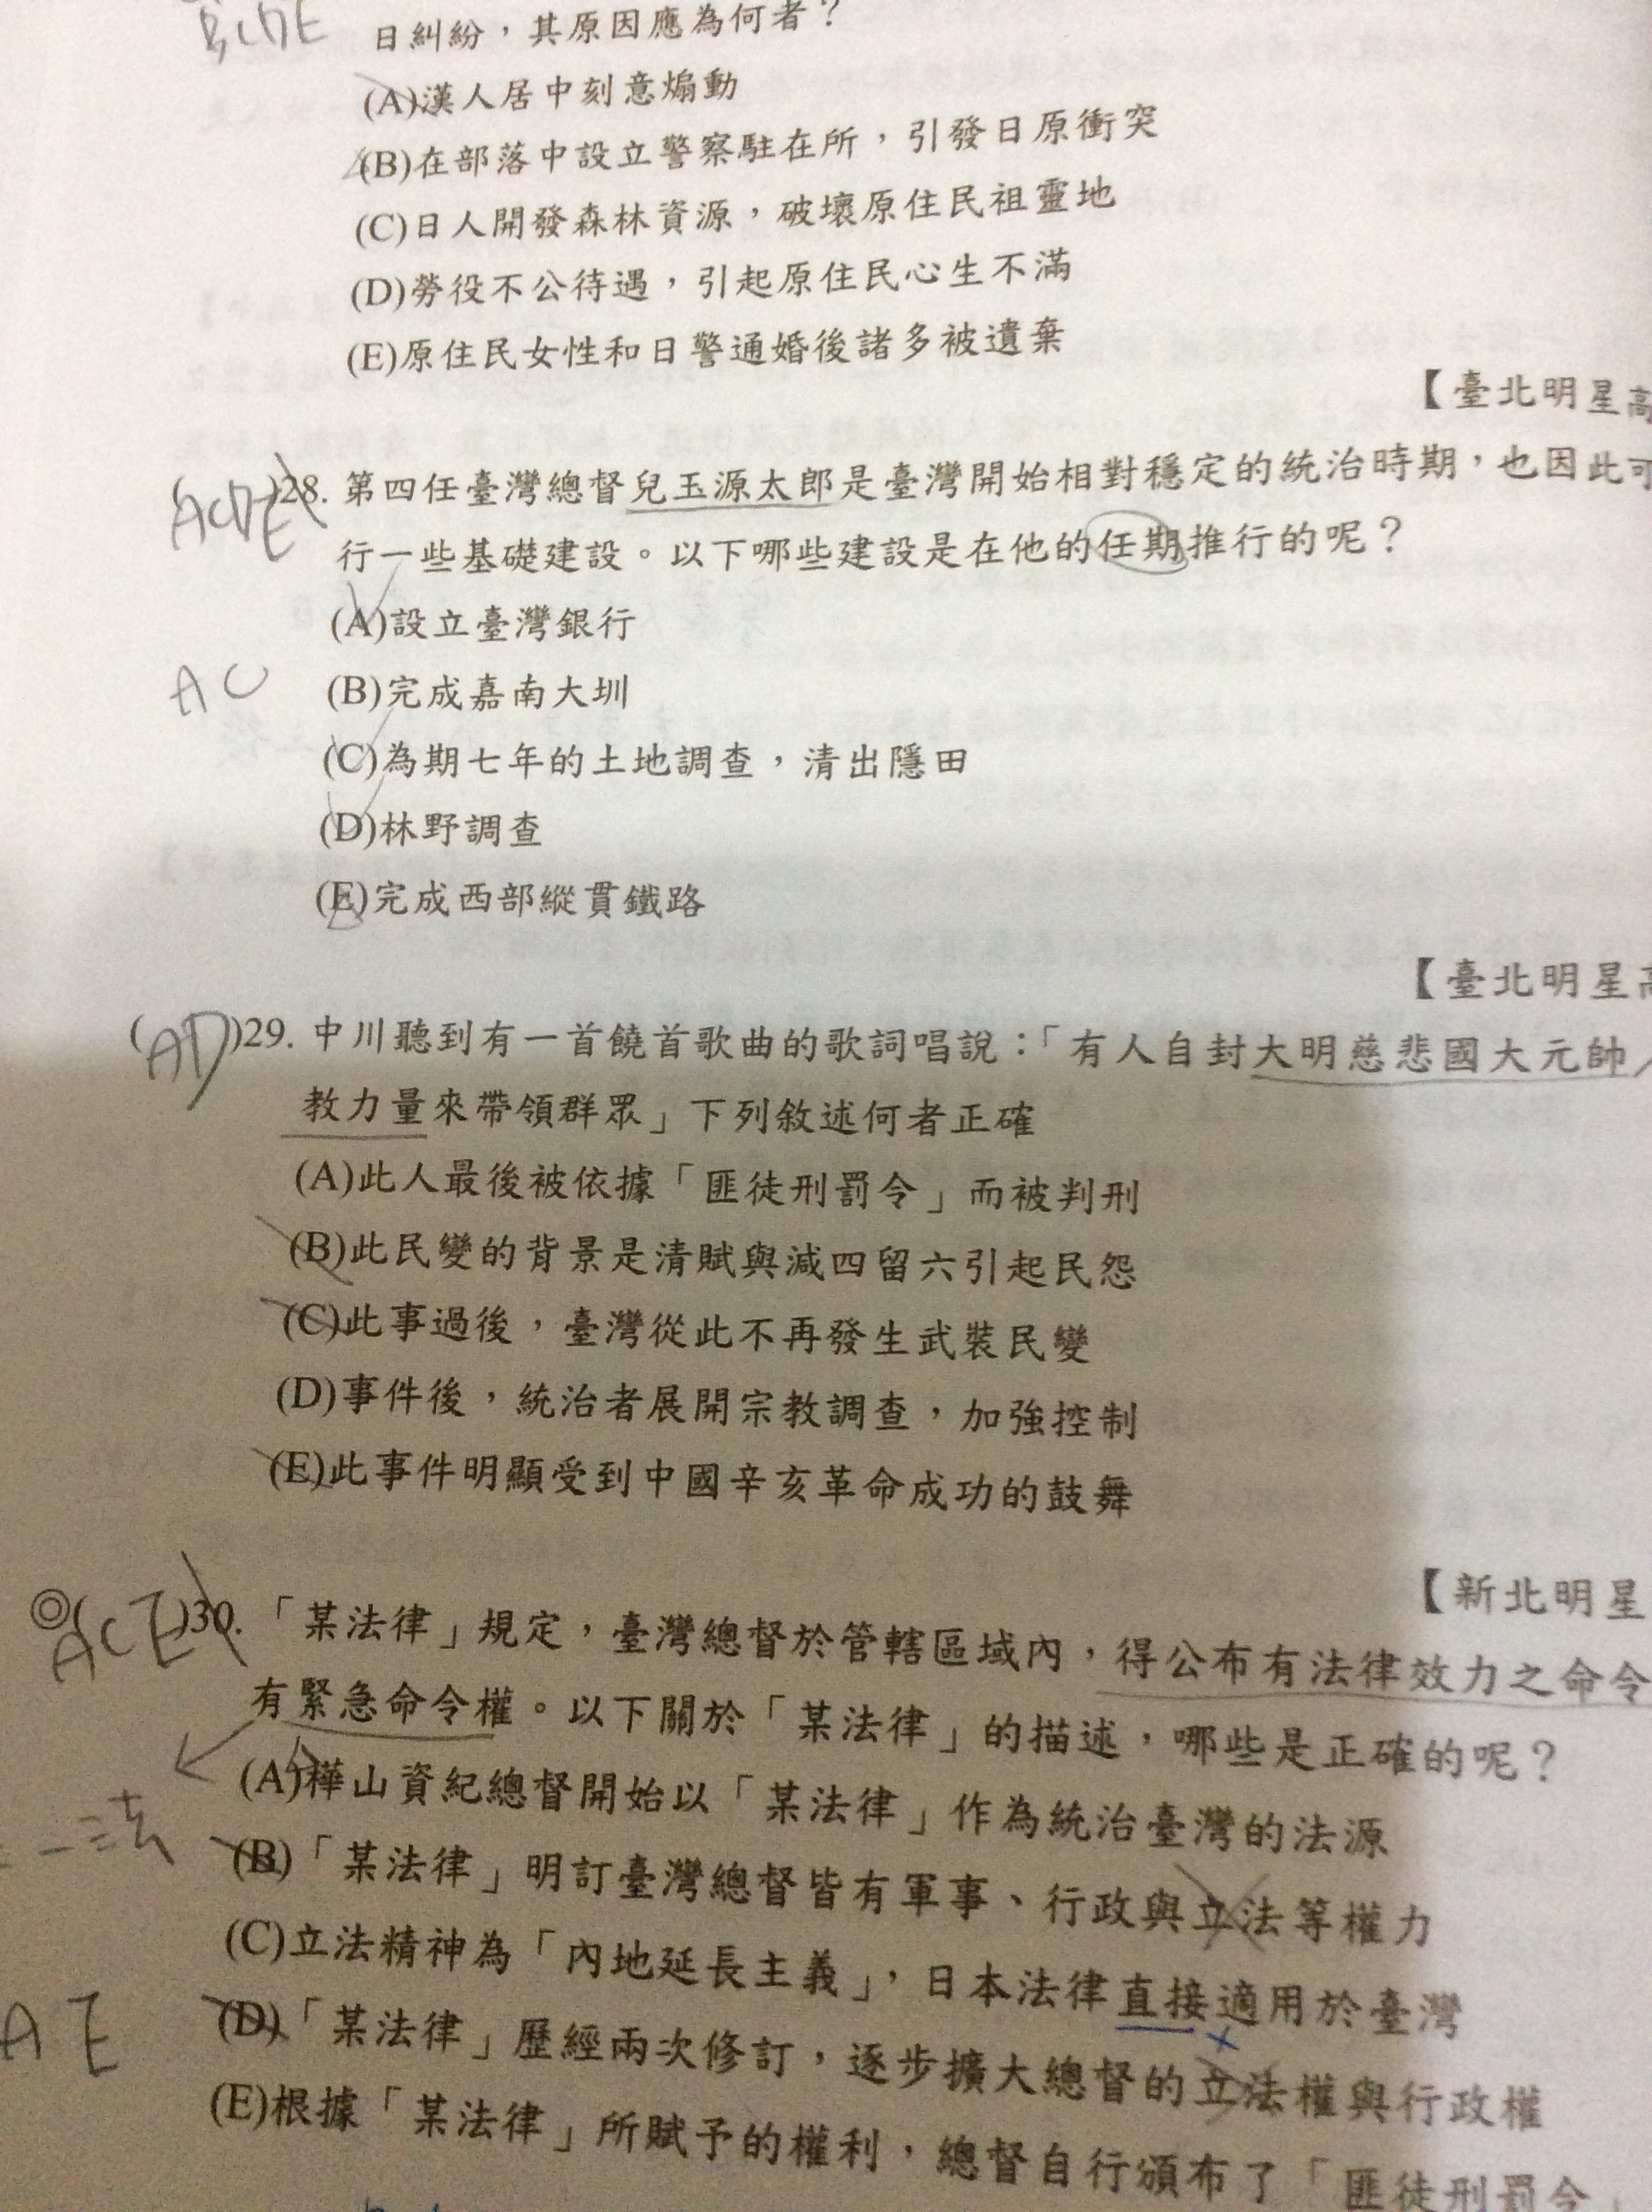 BCDE
日糾紛，其原因應為何者？
(A)漢人居中刻意煽動
(B)在部落中設立警察駐在所，引發日原衝突
(C)日人開發森林資源，破壞原住民祖靈地
(D)勞役不公待遇，引起原住民心生不滿
(E)原住民女性和日警通婚後諸多被遺棄
【臺北明星高
(ACDE)28. 第四任臺灣總督兒玉源太郎是臺灣開始相對穩定的統治時期，也因此可
行一些基礎建設。以下哪些建設是在他的任期推行的呢？
(A)設立臺灣銀行
AC
(B)完成嘉南大圳
(C)為期七年的土地調查，清出隱田
(D)林野調查
(E)完成西部縱貫鐵路
【臺北明星高
(AD)29. 中川聽到有一首饒首歌曲的歌詞唱說：「有人自封大明慈悲國大元帥
教力量來帶領群眾」下列敘述何者正確
(A)此人最後被依據「匪徒刑罰令」而被判刑
(B)此民變的背景是清賦與減四留六引起民怨
(C)此事過後，臺灣從此不再發生武裝民變
(D)事件後，統治者展開宗教調查，加強控制
(E)此事件明顯受到中國辛亥革命成功的鼓舞
【新北明星
◎(ACE)30. 「某法律」規定，臺灣總督於管轄區域內，得公布有法律效力之命令
有緊急命令權。以下關於「某法律」的描述，哪些是正確的呢？
(A)樺山資紀總督開始以「某法律」作為統治臺灣的法源
一三法
(B)「某法律」明訂臺灣總督皆有軍事、行政與立法等權力
(C)立法精神為「內地延長主義」，日本法律直接適用於臺灣
AE
(D)「某法律」歷經兩次修訂，逐步擴大總督的立法權與行政權
(E)根據「某法律」所賦予的權利，總督自行頒布了「匪徒刑罰令」